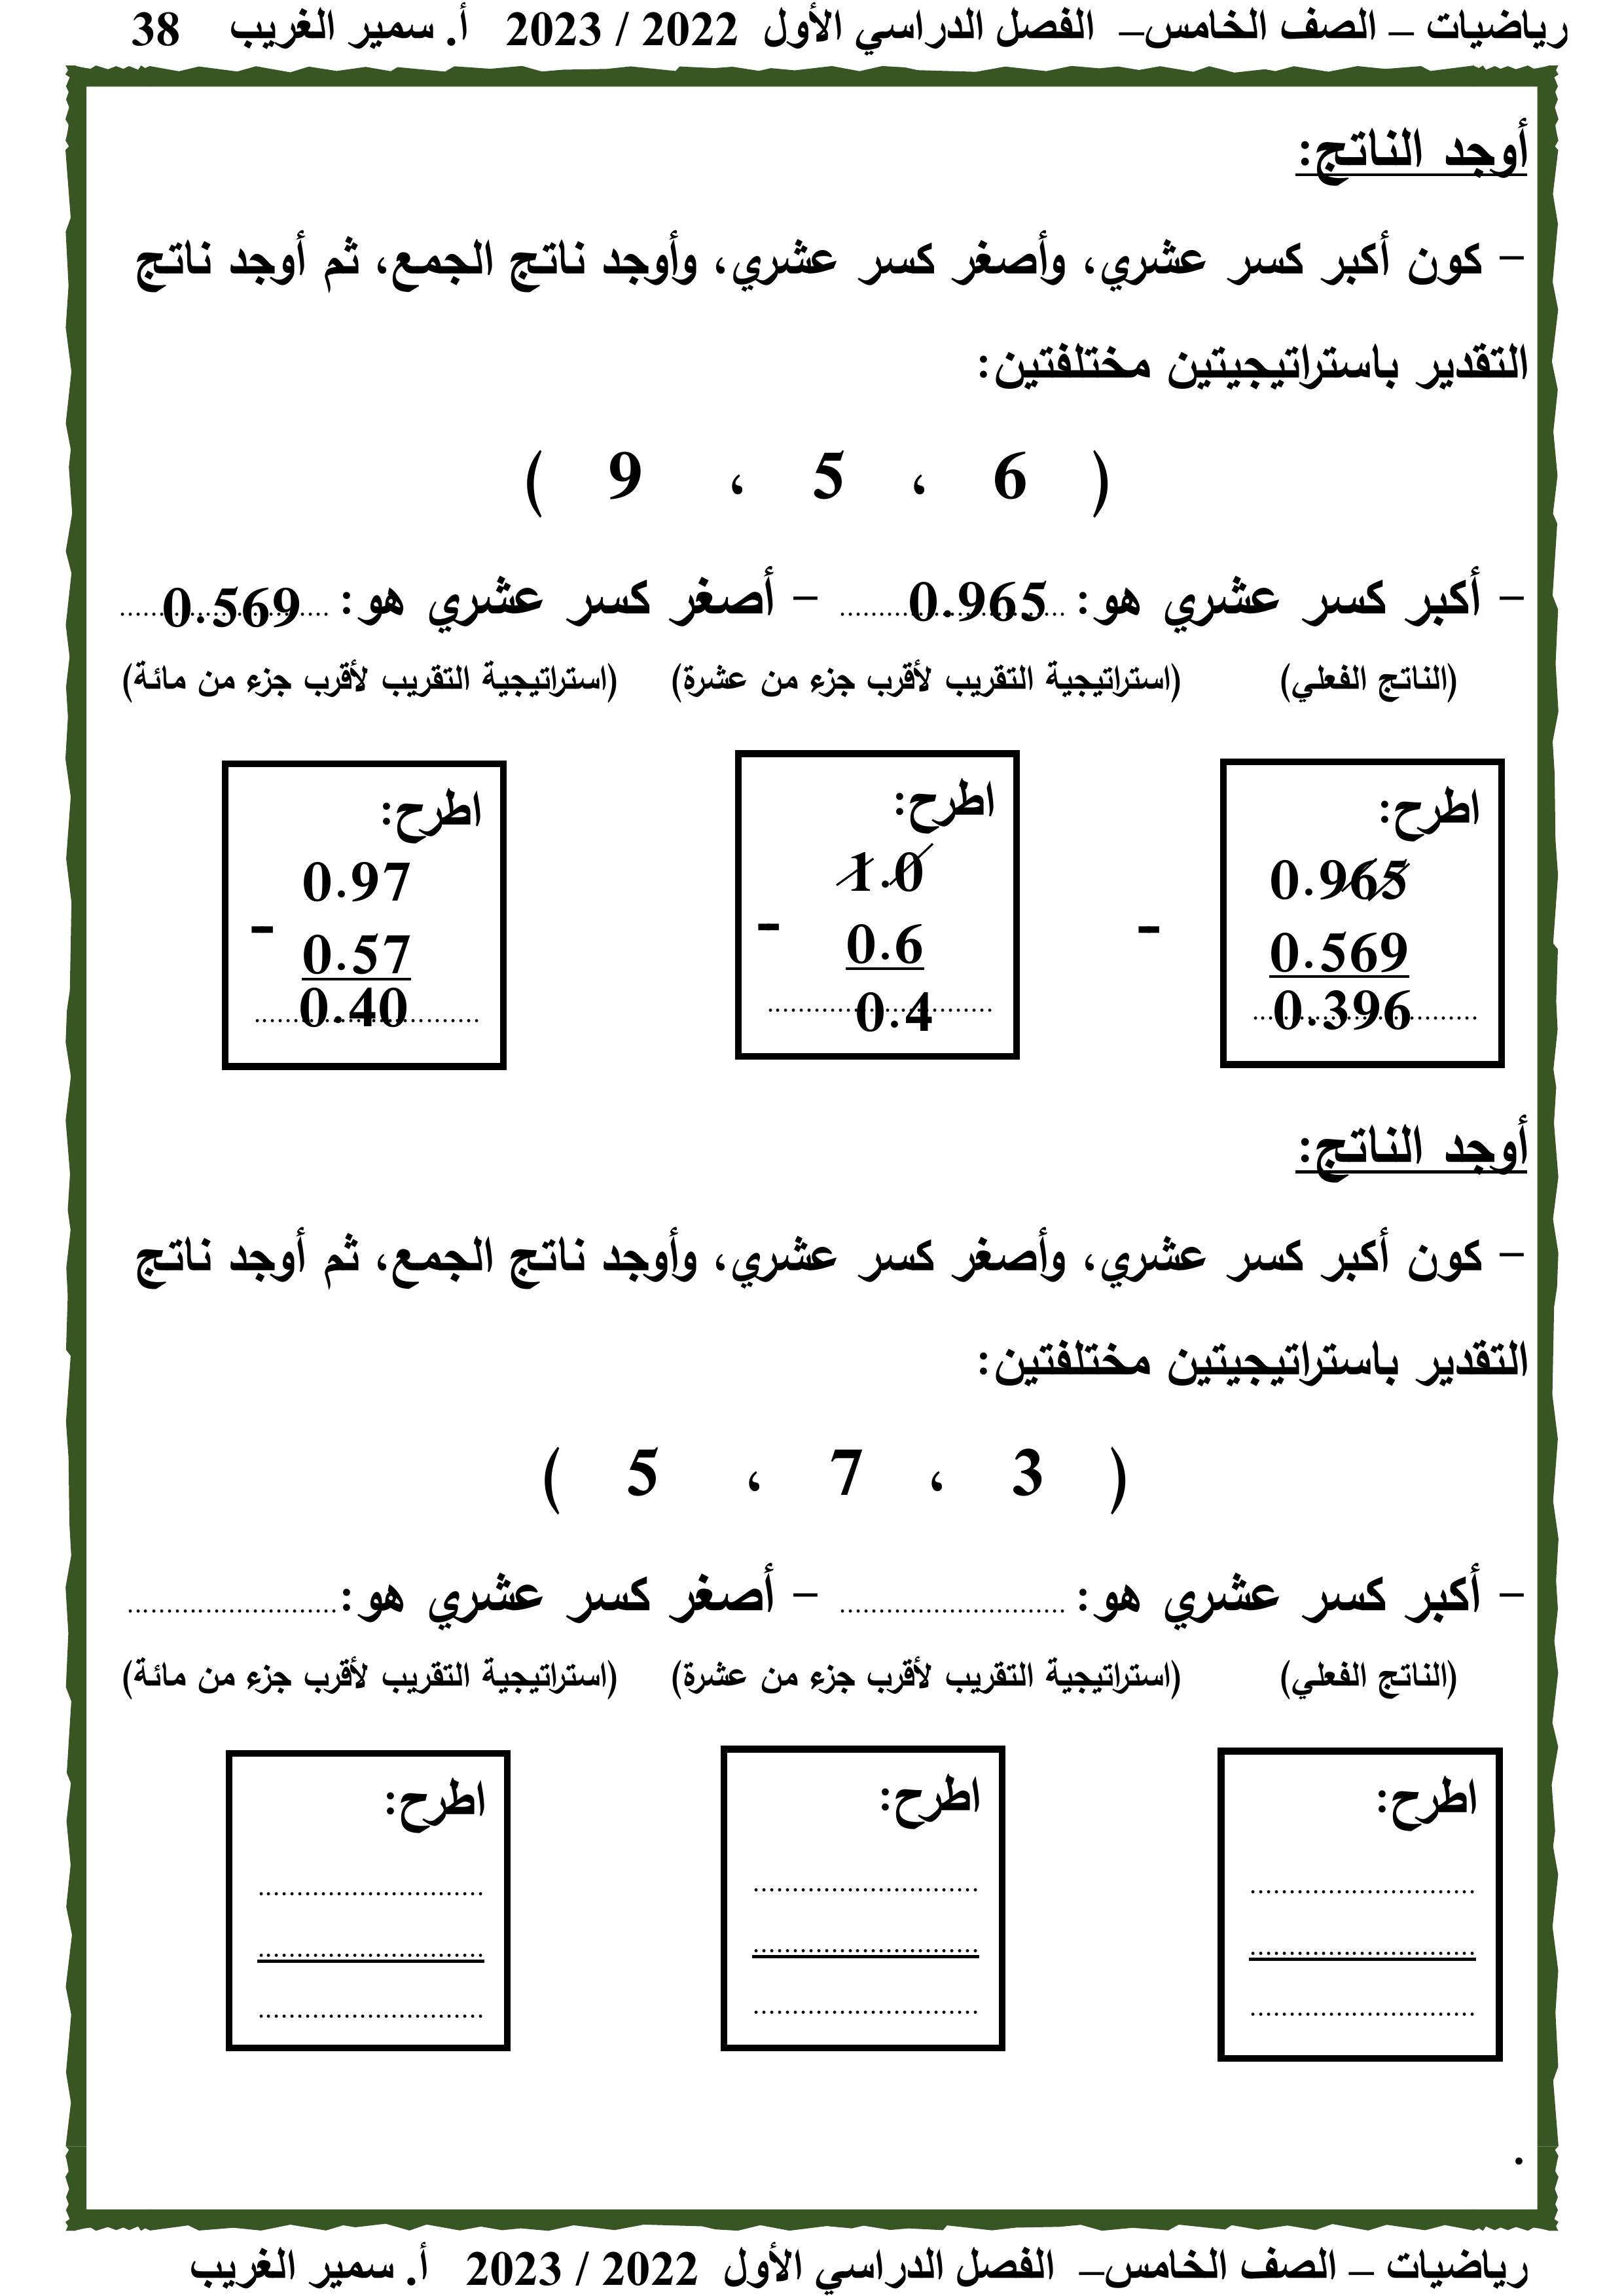 رياضيات – الصف الخامس– الفصل الدراسي الأول 2022 / 2023 أ. سمير الغريب 38
أوجد الناتج:
– كون أكبر كسر عشري، وأصغر كسر عشري، وأوجد ناتج الجمع، ثم أوجد ناتج
التقدير باستراتيجيتين مختلفتين:
( 6 ، 5 ، 9 )
– أكبر كسر عشري هو: 0.965 – أصغر كسر عشري هو: 0.569
(الناتج الفعلي) (استراتيجية التقريب لأقرب جزء من عشرة) (استراتيجية التقريب لأقرب جزء من مائة)
اطرح:
0.965
-
0.569
0.396
اطرح:
1.0
-
0.6
0.4
اطرح:
0.97
-
0.57
0.40
أوجد الناتج:
– كون أكبر كسر عشري، وأصغر كسر عشري، وأوجد ناتج الجمع، ثم أوجد ناتج
التقدير باستراتيجيتين مختلفتين:
( 3 ، 7 ، 5 )
– أكبر كسر عشري هو: ............................. – أصغر كسر عشري هو:...........................
(الناتج الفعلي) (استراتيجية التقريب لأقرب جزء من عشرة) (استراتيجية التقريب لأقرب جزء من مائة)
اطرح:
.............................
.............................
.............................
اطرح:
.............................
.............................
.............................
اطرح:
.............................
.............................
.............................
.
رياضيات – الصف الخامس– الفصل الدراسي الأول 2022 / 2023 أ. سمير الغريب